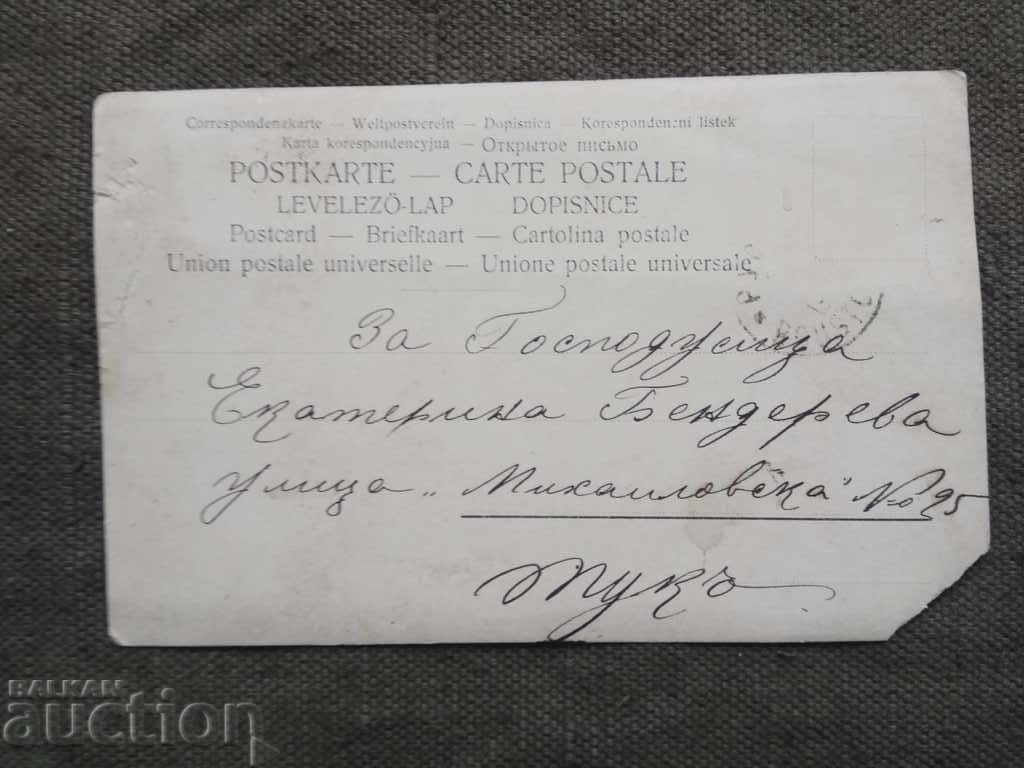 Correspondenzkarte — Weltpostverein — Dopisnica — Korespondenzni listek
Karta korespondencyjna — Открытое письмо
POSTKARTE — CARTE POSTALE
LEVELEZŐ-LAP DOPISNICE
Postcard — Briefkaart — Cartolina postale
Union postale universelle — Unione postale universale
За Господусица
Екатерина Бендерева
улица „Михаиловска" No 95
Тукъ
BALKAN
auction